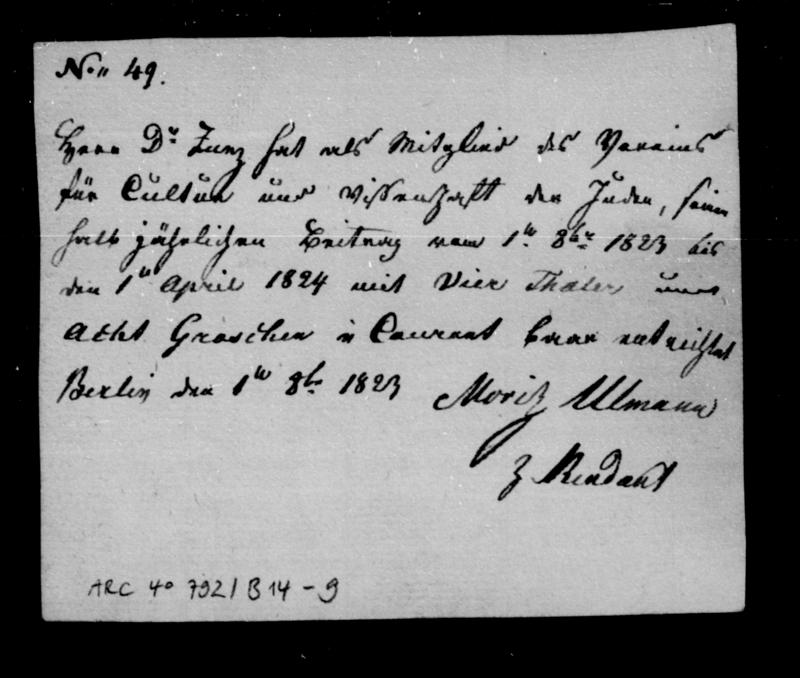 No. 49.
Herr Dr. Zunz hat als Mitglied des Vereins
für Cultur und Wissenschaft der Juden, seinen
halb jährlichen Beitrag vom 1tn 8br 1823 bis
den 1tn April 1824 mit Vier Thaler und
Acht Groschen in Courant baar entrichtet
Berlin den 1tn 8br 1823 Moritz Ulmann
z Rendant
ARC 4o 792/B14-9